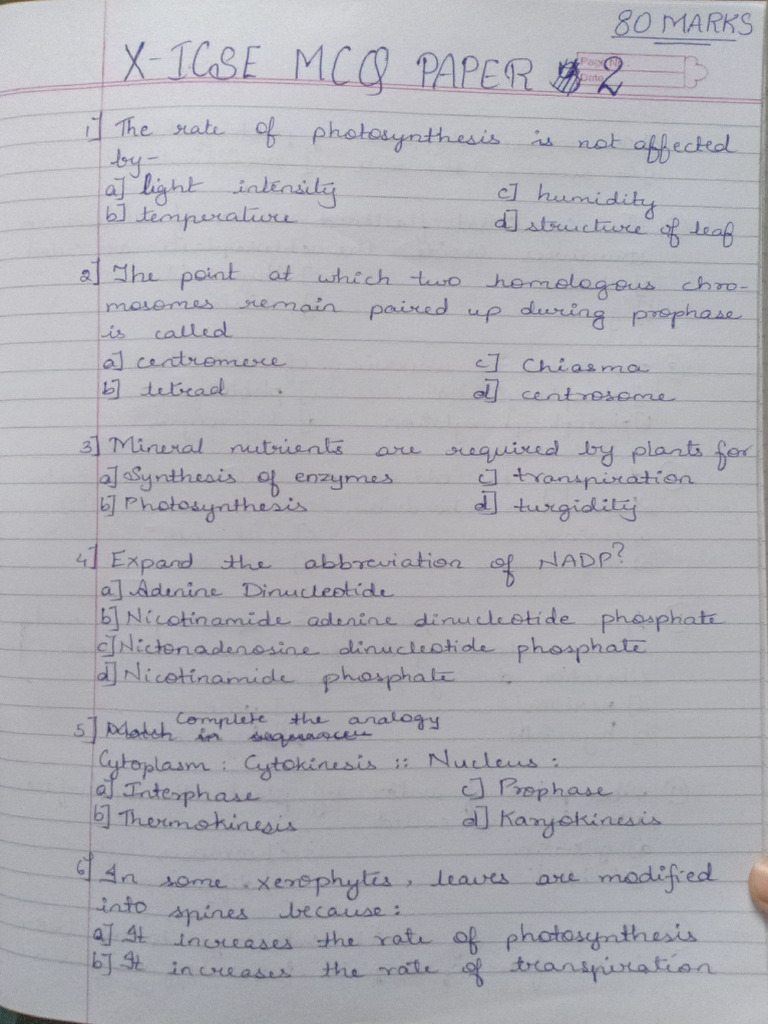 80 MARKS
X-ICSE MCQ PAPER 2
Page No.
Date
1] The rate of photosynthesis is not affected
by-
a] light intensity c] humidity
b] temperature d] structure of leaf
2] The point at which two homologous chro-
mosomes remain paired up during prophase
is called
a] centromere c] Chiasma
b] tetrad d] centrosome
3] Mineral nutrients are required by plants for
a] Synthesis of enzymes c] transpiration
b] Photosynthesis d] turgidity
4] Expand the abbreviation of NADP?
a] Adenine Dinucleotide
b] Nicotinamide adenine dinucleotide phosphate
c] Nictonadenosine dinucleotide phosphate
d] Nicotinamide phosphate
Complete the analogy
5] Match in sequence
Cytoplasm : Cytokinesis :: Nucleus :
a] Interphase c] Prophase
b] Thermokinesis d] Karyokinesis
6] In some xerophytes, leaves are modified
into spines because:
a] It increases the rate of photosynthesis
b] It increases the rate of transpiration